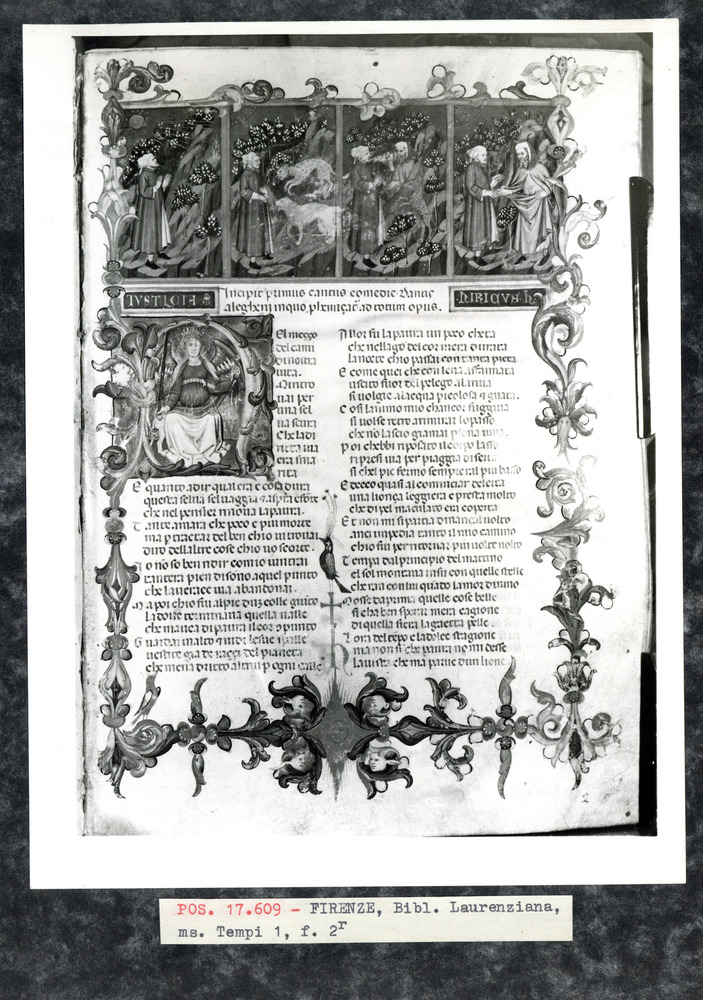 IVSTICIA
Incipit primus cantus comedie Dantis
alegherij in quo ad totum opus.
El mezço
del cami
di nostra
uita.
ritro
uai per
una sel
ua scura
Che la di
ritta uia
era sma
rita
E quanto adir qual era e cosa dura
questa selua seluaggia & aspra & forte
che nel pensier rinoua la paura.
T ant e amara che poco e piu morte
ma per tractar del ben chio ui trouai
diro dellaltre cose chio uo scorte.
I o no so ben ridir comio uintrai
tantera pien di sono aquel punto
che la uerace uia abandonai.
M a poi chio fui alpie duz colle giunto
la doue terminaua quella ualle
che mauea di paura il cor compunto
G uardai in alto & uidi le sue spalle
uestite gia de raggi del pianeta
che mena dritto altrui per ogni calle
A llor fu la paura un poco cheta
che nellago del cor mera durata
la nocte chio passai con tanta pieta
E come quei che con lena affannata
uscito fuor del pelego alla riua
si uolge alacqua & guata.
C osi lanimo mio chancor fuggiua
si uolse retro arimirar lo passo
che no lascio giamai persona uiua.
P oi chebbi riposato il corpo lasso
ripresi uia per piaggia diserta
si chel pie fermo sempre era il piu basso
E decco quasi al cominciar delerta
una lionça leggiera e presta molto
che di pel maculato era coperta
E t non mi si partia dinançi al uolto
ançi impedia tanto il mio camino
chio fui per ritornar piu uolte uolto
T empo dal principio del matino
el sol montaua insu con quelle stelle
che ran con lui quado lamor diuino
M osse da prima quelle cose belle
si cha ben sperar mera cagione
di quella fiera la gaetta pelle
L ora del tempo e la dolce stagione
ma non si che paura no mi desse
la uista che ma parue dun lione
2
POS. 17.609 - FIRENZE, Bibl. Laurenziana,
ms. Tempi 1, f. 2r